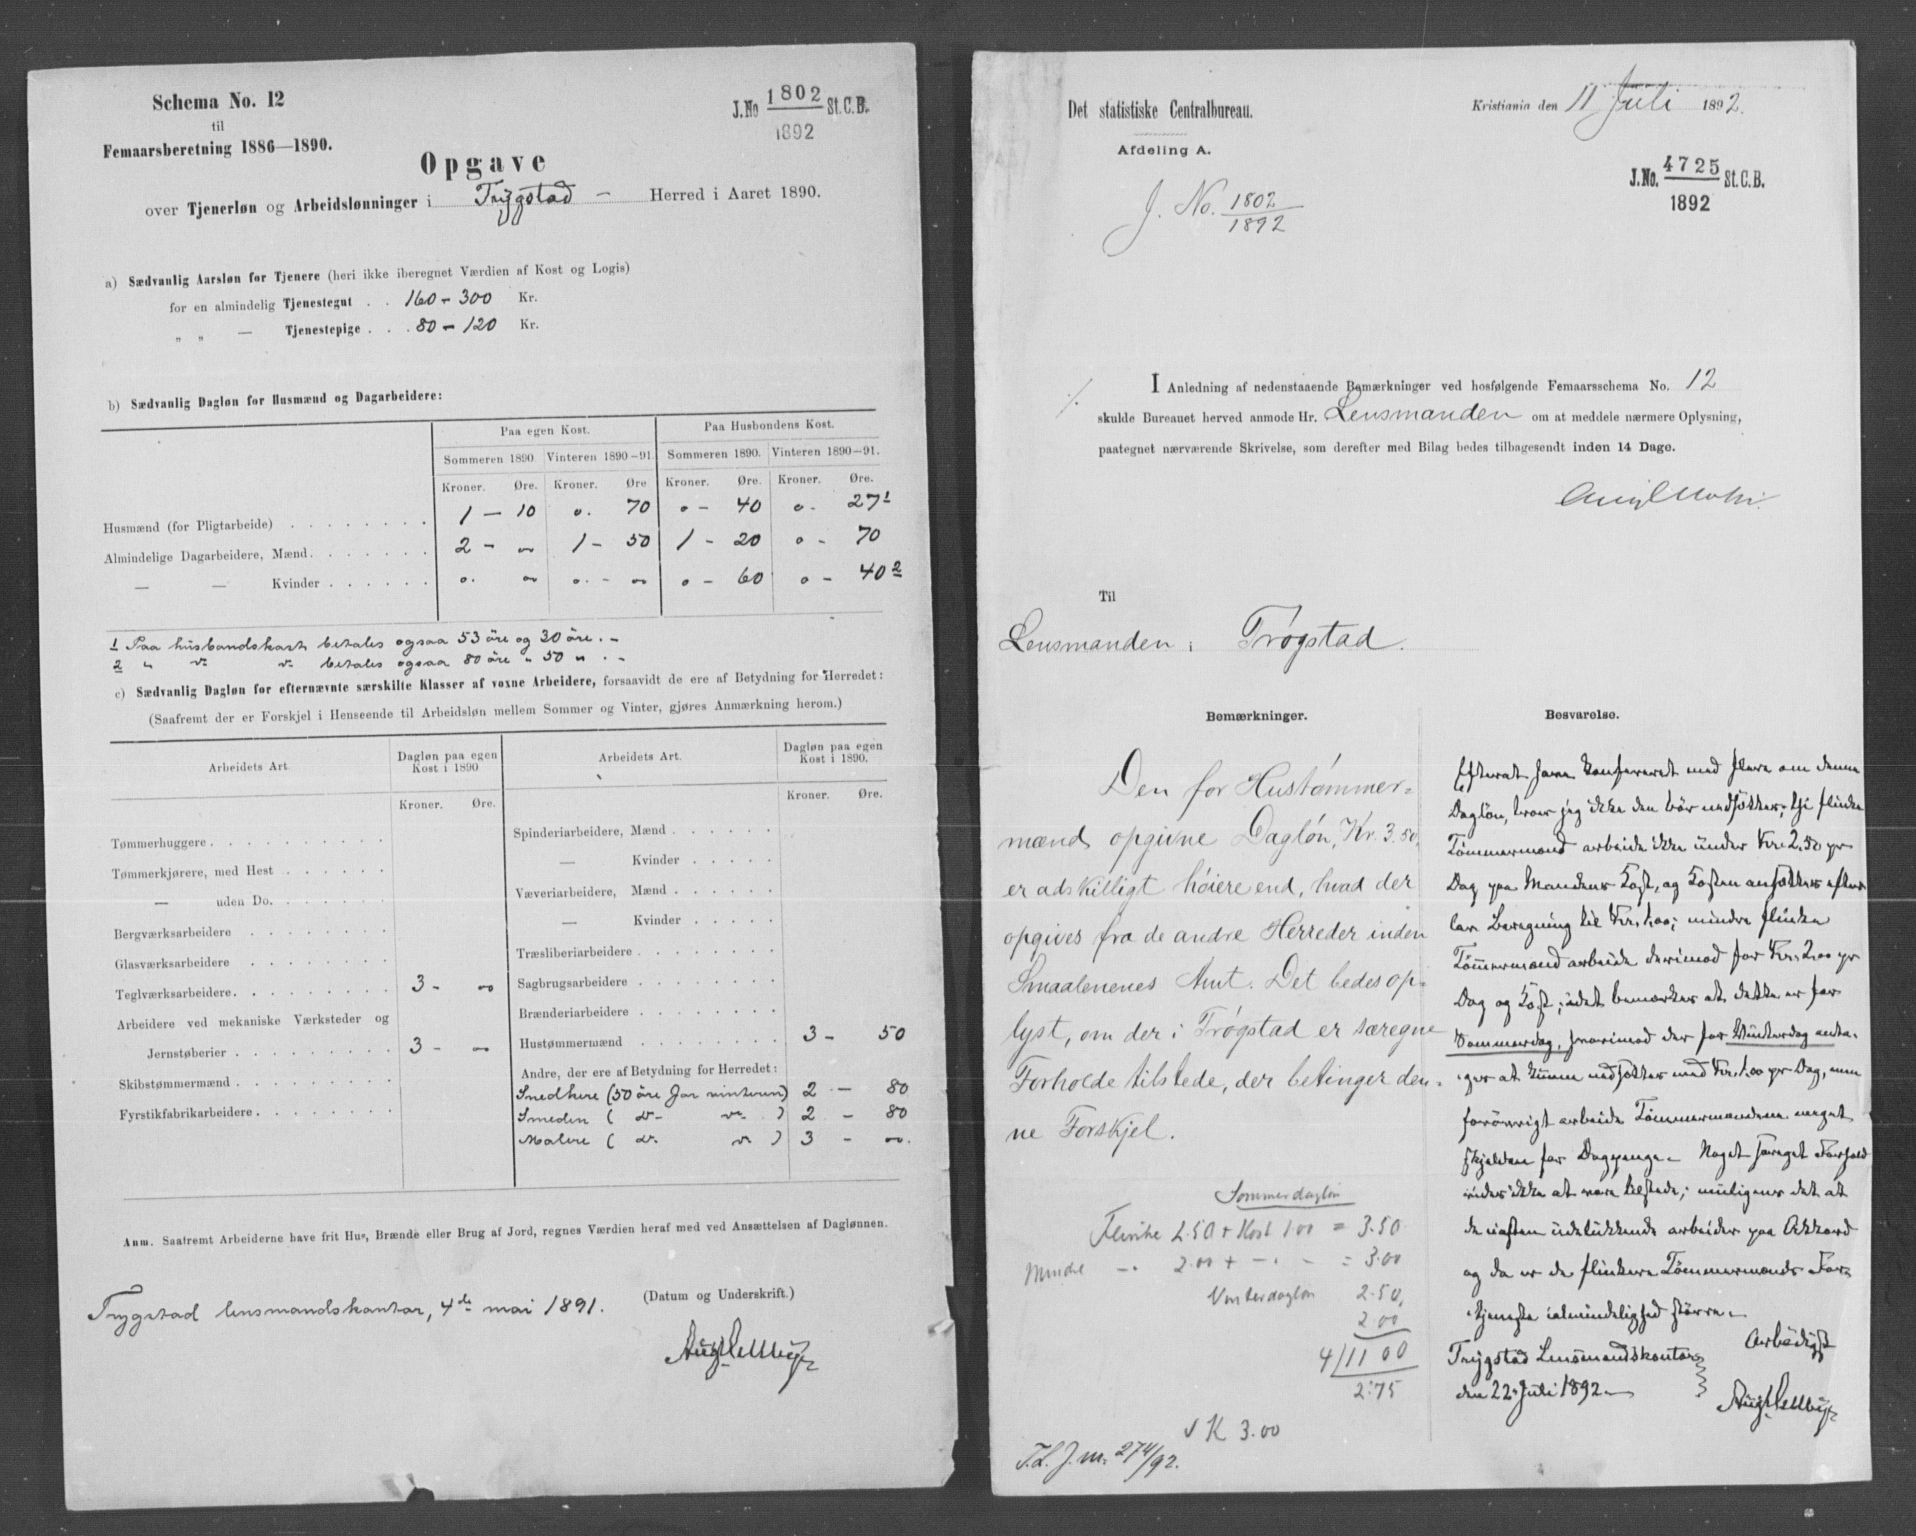 Schema No. 12
til
Femaarsberetning 1886—1890.
J.No 1802 St.C.B.
1892
Opgave
over Tjenerløn og Arbeidslønninger i Trygstad — Herred i Aaret 1890.
a) Sædvanlig Aarsløn for Tjenere (heri ikke iberegnet Værdien af Kost og Logis)
for en almindelig Tjenestegut . . 160 - 300 Kr.
„ „ — Tjenestepige . . . 80 - 120 Kr.
b) Sædvanlig Dagløn for Husmænd og Dagarbeidere:
Paa egen Kost. Paa Husbondens Kost.
Sommeren 1890 Vinteren 1890-91. Sommeren 1890. Vinteren 1890-91.
Kroner. Øre. Kroner. Øre Kroner. Øre. Kroner. Øre.
Husmænd (for Pligtarbeide) . . . . . . . . 1 — 10 o. 70 o - 40 o - 27 1
Almindelige Dagarbeidere, Mænd. . . . . . . 2 - „ 1 - 50 1 - 20 o - 70
— — Kvinder . . . . . . o. „ o. - „ o - 60 o - 40 2
1 Paa husbandskost betales ogsaa 53 öre og 30 öre . -
2 „ do do betales ogsaa 80 öre „ 50 „ . -
c) Sædvanlig Dagløn for efternævnte særskilte Klasser af voxne Arbeidere, forsaavidt de ere af Betydning for Herredet:
(Saafremt der er Forskjel i Henseende til Arbeidsløn mellem Sommer og Vinter, gjøres Anmærkning herom.)
Arbeidets Art. Dagløn paa egen Kost i 1890 Arbeidets Art. Dagløn paa egen Kost i 1890.
Kroner. Øre. Kroner. Øre.
Tømmerhuggere . . . . . . . . . . Spinderiarbeidere, Mænd . . . . . .
Tømmerkjørere, med Hest . . . . . . — Kvinder . . . . .
— uden Do. . . . . . . Væveriarbeidere, Mænd . . . . . .
Bergværksarbeidere . . . . . . . . — Kvinder . . . . .
Glasværksarbeidere . . . . . . . . Træsliberiarbeidere . . . . . . . .
Teglværksarbeidere. . . . . . . . . 3 - „ Sagbrugsarbeidere . . . . . . . .
Arbeidere ved mekaniske Værksteder og Brænderiarbeidere . . . . . . . .
Jernstøberier . . . . . . . . . 3 - „ Hustømmermænd . . . . . . . . 3 - 50
Skibstømmermænd . . . . . . . . . Andre, der ere af Betydning for Herredet:
Snedkere (50 öre for vinteren) 2 — 80
Fyrstikfabrikarbeidere . . . . . . . . Smeden ( do do ) 2 — 80
Malere ( do do ) 3 - „
Anm. Saafremt Arbeiderne have frit Hus, Brænde eller Brug af Jord, regnes Værdien heraf med ved Ansættelsen af Daglønnen.
(Datum og Underskrift.)
Trygstad lensmandskontor, 4de mai 1891.
Det statistiske Centralbureau.
Afdeling A.
Kristiania den 11 Juli 1892.
J. No. 1802
1892
J.No. 4725 St.C.B.
1892
I Anledning af nedenstaaende Bemærkninger ved hosfølgende Femaarsschema No. 12
skulde Bureauet herved anmode Hr. Lensmanden om at meddele nærmere Oplysning,
paategnet nærværende Skrivelse, som derefter med Bilag bedes tilbagesendt inden 14 Dage.
Til
Lensmanden i Trøgstad.
Bemærkninger.
Den for Hustømmer=
mænd opgivne Dagløn, Kr. 3.50,
er adskilligt høiere end, hvad der
opgives fra de andre Herreder inden
Smaalenenes Amt. Det bedes op=
lyst, om der i Trøgstad er særegne
Forholde tilstede, der betinger den=
ne Forskjel.
Sommerdagløn
Flinke 2.50 + Kost 1.00 = 3.50
Mindre — . 2.00 + — . — = 3.00
Vinterdagløn 2.50,
2.00
4/11 00
2.75
√ K 3.00
T.L. J.nr. 274/92.
Besvarelse.
Efterat have konfereret med flere om denne
Dagløn, tror jeg ikke den bör nedsættes; thi flinke
Tömmermænd arbeide ikke ünder Kr. 2.50 pr
Dag paa Mandens Kost, og Kosten ansættes efter
lav Beregning til Kr. 1.00; mindre flinke
Tömmermænd arbeide derimod for Kr. 2.00 pr
Dag og Kost; idet bemærkes at dette er for
Sommerdag, hvorimod der for Vinterdag anta-
ges at kunne nedsættes med Kr. 1.00 pr Dag, men
forövrigt arbeide Tömmermændene meget
sjelden for Dagpenge. Noget særeget Forhold
vides ikke at være tilstede; muligens det at
de næsten udelukkende arbeider paa Akkord
og da er de flinkere Tömmermænds For-
tjeneste ialmindelighed större.
Ærbödigst
Trygstad Lensmandskontor
den 22 Juli 1892